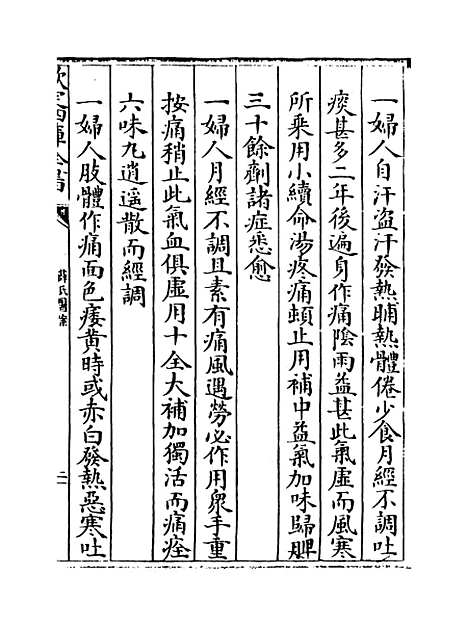 一婦人自汗盗汗發熱晡熱體倦少食月經不調吐
痰甚多二年後遍身作痛隂雨益甚此氣虛而風寒
所乘用小續命湯疼痛頓止用補中益氣加味歸脾
三十餘劑諸症悉愈
一婦人月經不調且素有痛風遇勞必作用衆手重
按痛稍止此氣血俱虛用十全大補加獨活而痛痊
六味丸逍遥散而經調
一婦人肢體作痛面色痿黄時或赤白發熱惡寒吐
欽定四庫全書
薛氏醫案
二